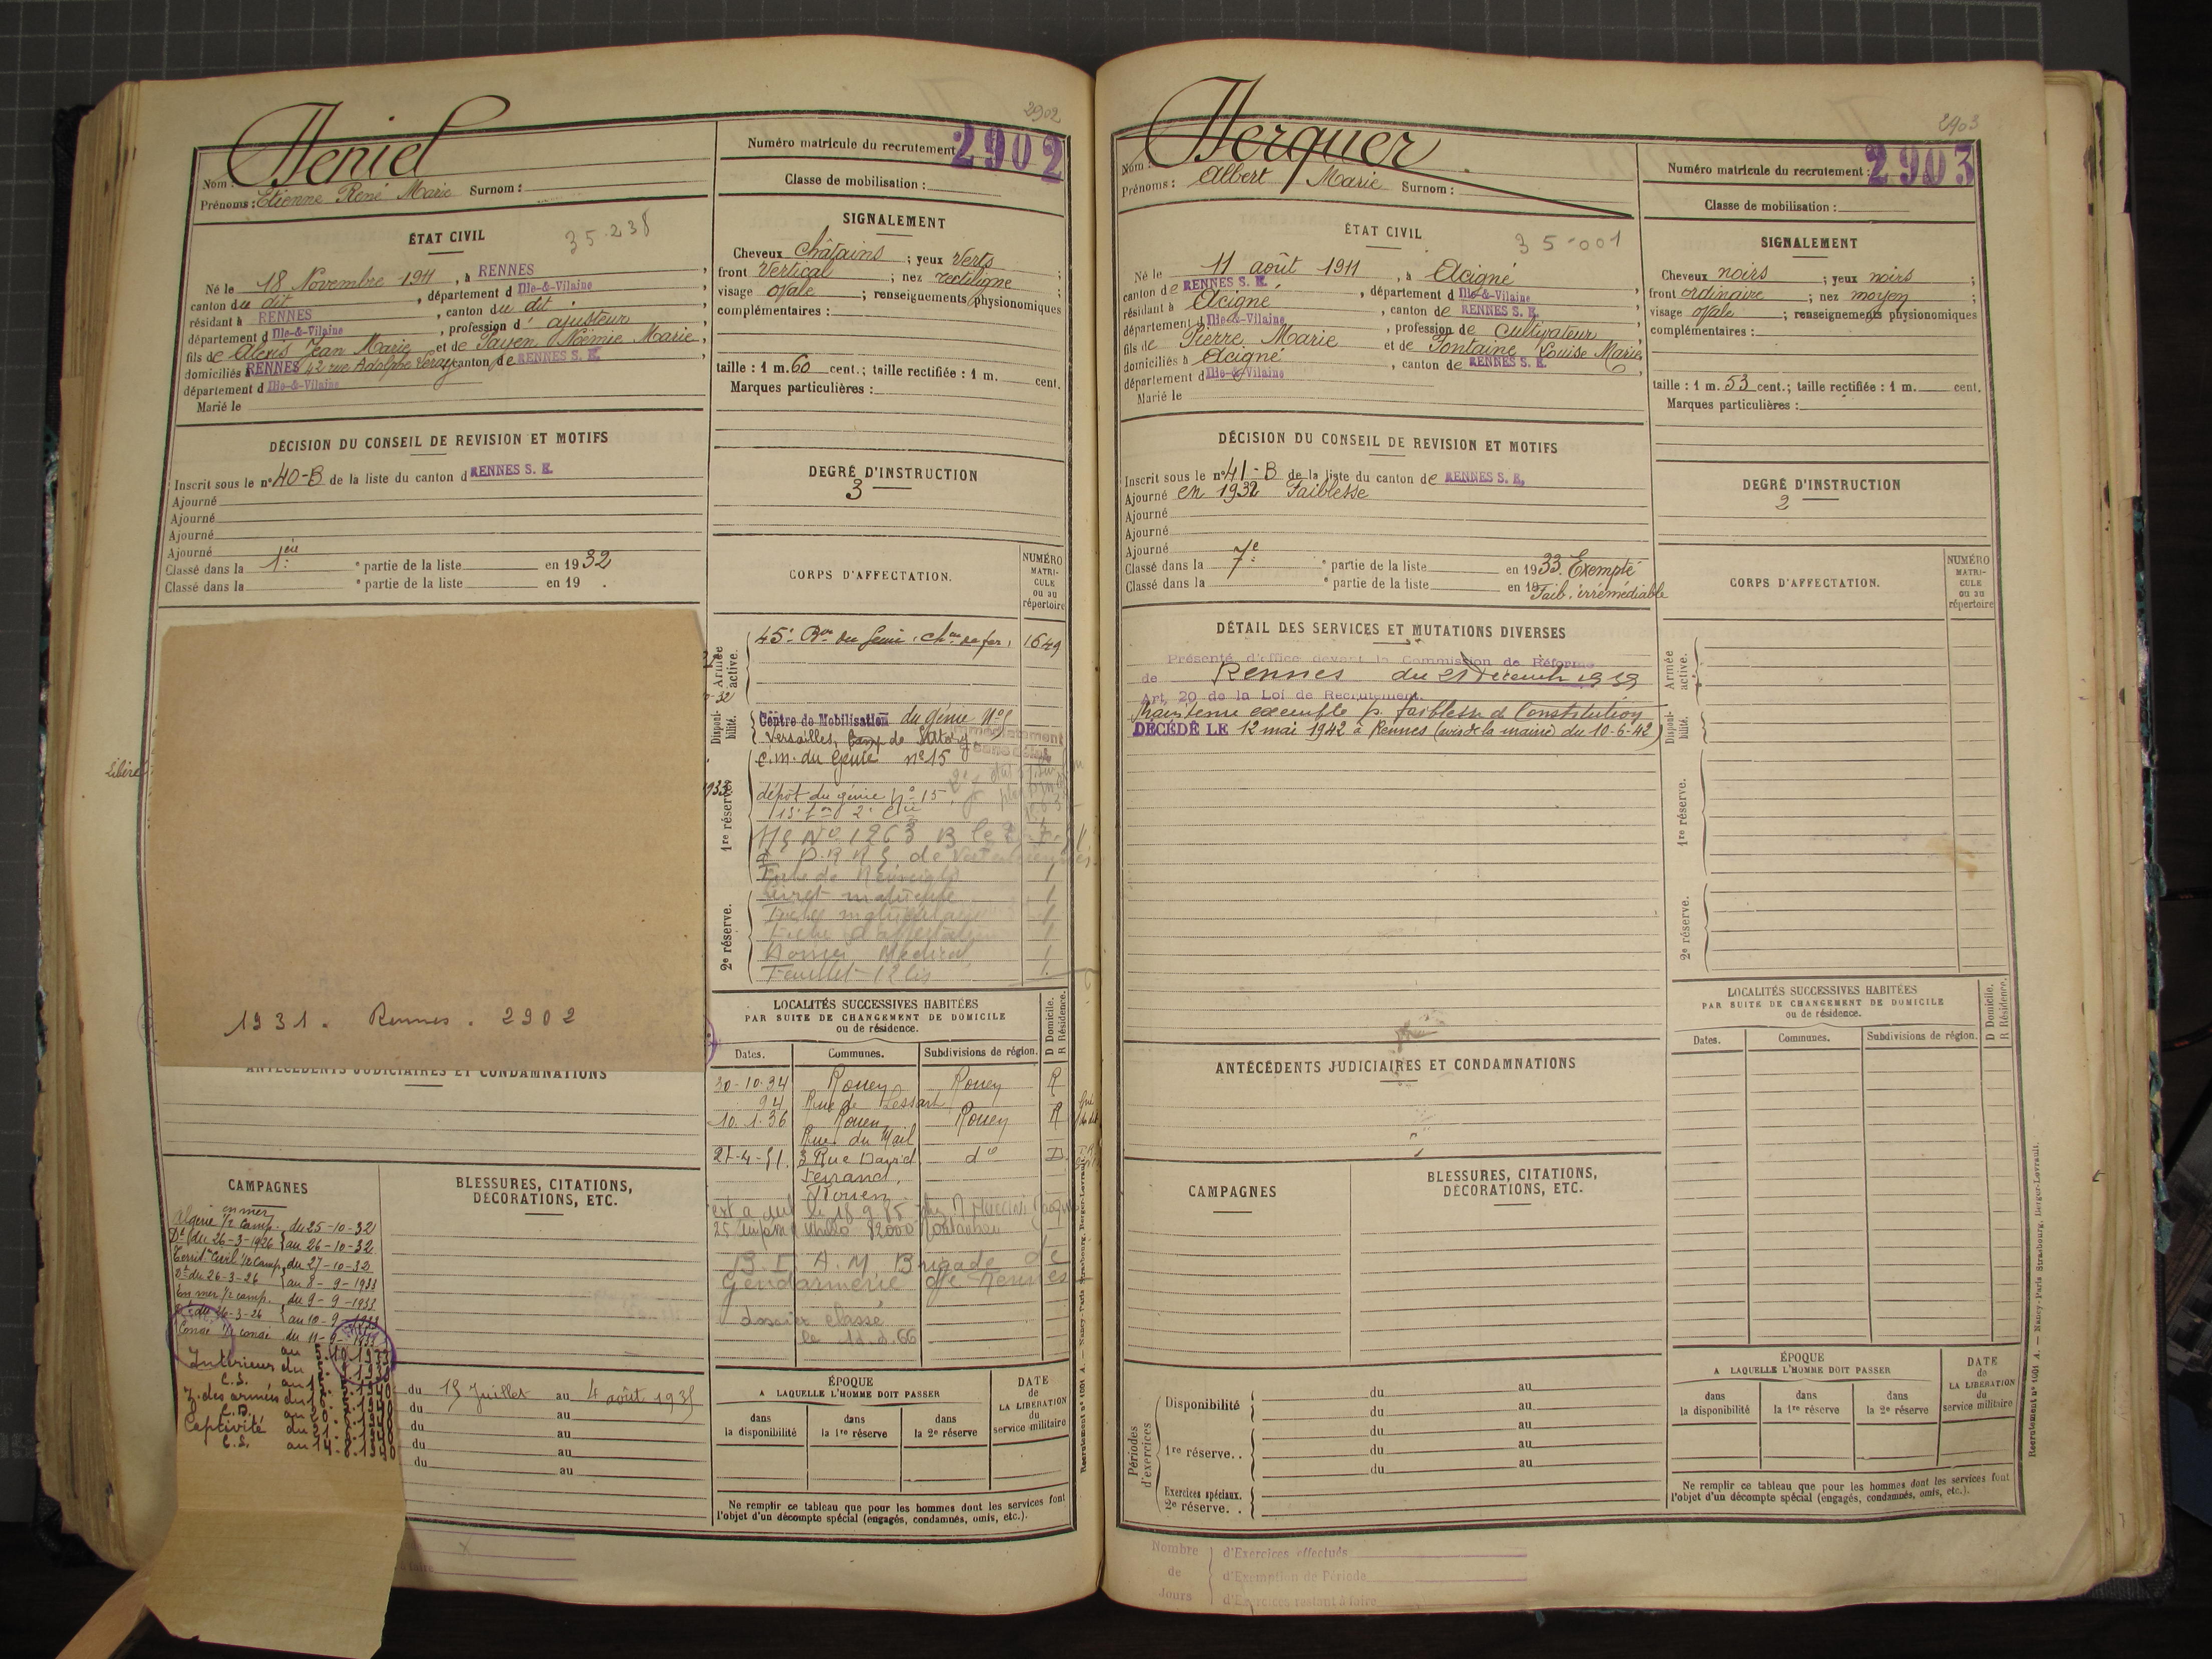 2902
Heniel
Nom :
Prénoms : Etienne René Marie Surnom :
Numéro matricule du recrutement : 2902
Classe de mobilisation :
ÉTAT CIVIL
35.238
Né le 18 Novembre 1911, à RENNES
canton du dit, département d Ille-&-Vilaine
résidant à RENNES, canton du dit
département d Ille-&-Vilaine, profession d' ajusteur
fils de Alexis Jean Marie et de Payen Noémie Marie
domiciliés à RENNES 42 rue Adolphe Leray canton de RENNES S. E.
département d Ille-&-Vilaine
Marié le
SIGNALEMENT
Cheveux châtains ; yeux verts ;
front vertical ; nez rectiligne ;
visage ovale ; renseignements physionomiques
complémentaires :
taille : 1 m. 60 cent. ; taille rectifiée : 1 m. cent.
Marques particulières :
DÉCISION DU CONSEIL DE REVISION ET MOTIFS
Inscrit sous le n° 40-B de la liste du canton d RENNES S. E.
Ajourné
Ajourné
Ajourné
Ajourné
Classé dans la 1ère partie de la liste en 1932
Classé dans la partie de la liste en 19 .
DEGRÉ D'INSTRUCTION
3
CORPS D'AFFECTATION.
NUMÉRO MATRI-CULE ou au répertoire
Armée active.
45e Bon du Génie, ch. de fer, 1649
Disponi-bilité.
Centre de Mobilisation du génie N°
Versailles, Camp de Satory
immédiatement
1re réserve.
C.M. du Génie n° 15
dépôt du génie N° 15
2e réserve.
Livret matricule 1
Feuillet 12 bis 1
Libéré
1931. Rennes. 2902
ANTÉCÉDENTS JUDICIAIRES ET CONDAMNATIONS
LOCALITÉS SUCCESSIVES HABITÉES
PAR SUITE DE CHANGEMENT DE DOMICILE
ou de résidence.
D Domicile. R Résidence.
Dates. Communes. Subdivisions de région.
30-10-34 Rouen Rouen R
94 Rue de Lessart
10.1.36 Rouen Rouen R
Rue du Mail
3 Rue David d°
Ferrand,
Rouen
82000 Montauban
B. F. A. M. Brigade de
Gendarmerie de Rennes
dossier classé
CAMPAGNES
BLESSURES, CITATIONS,
DÉCORATIONS, ETC.
en mer
Algérie 1/2 camp. du 25-10-32
D. du 26-3-1926 au 26-10-32
Territ. Civil 1/2 camp. du 27-10-32
D. du 26-3-26 au 8-9-1933
En mer 1/2 camp. du 9-9-1933
D. du 26-3-26 au 10-9-1933
Congé 1/2 congé du 11-9-1933
Intérieur du
C.S. au
Z. des armées du
Captivité du
C.S. au 14.8.1940
du 15 Juillet au 4 août 1935
du au
du au
du au
du au
ÉPOQUE
A LAQUELLE L'HOMME DOIT PASSER
dans la disponibilité
dans la 1re réserve
dans la 2e réserve
DATE de LA LIBÉRATION du service militaire
Ne remplir ce tableau que pour les hommes dont les services font
l'objet d'un décompte spécial (engagés, condamnés, omis, etc.).
Recrutement n° 1001 A. — Nancy-Paris Strasbourg, Berger-Levrault.
2903
Herquer
Nom :
Prénoms : Albert Marie Surnom :
Numéro matricule du recrutement : 2903
Classe de mobilisation :
ÉTAT CIVIL
35-001
Né le 11 août 1911, à Acigné
canton de RENNES S. E., département d Ille-&-Vilaine
résidant à Acigné, canton de RENNES S. E.
département d Ille-&-Vilaine, profession de cultivateur
fils de Pierre Marie et de Fontaine Louise Marie
domiciliés à Acigné, canton de RENNES S. E.
département d Ille-&-Vilaine
Marié le
SIGNALEMENT
Cheveux noirs ; yeux noirs ;
front ordinaire ; nez moyen ;
visage ovale ; renseignements physionomiques
complémentaires :
taille : 1 m. 53 cent. ; taille rectifiée : 1 m. cent.
Marques particulières :
DÉCISION DU CONSEIL DE REVISION ET MOTIFS
Inscrit sous le n° 41-B de la liste du canton de RENNES S. E.
Ajourné en 1932 Faiblesse
Ajourné
Ajourné
Ajourné
Classé dans la 7e partie de la liste en 1933. Exempté
Classé dans la partie de la liste en 19 Faib. irrémédiable
DEGRÉ D'INSTRUCTION
2
CORPS D'AFFECTATION.
NUMÉRO MATRI-CULE ou au répertoire
DÉTAIL DES SERVICES ET MUTATIONS DIVERSES
Présenté d'office devant la Commission de Réforme
de Rennes du 21 Décemb 1939
Art. 20 de la Loi de Recrutement.
Maintenu exempté p. faiblesse de Constitution
DÉCÉDÉ LE 12 mai 1942 à Rennes (avis de la mairie du 10-6-42)
Armée active.
Disponi-bilité.
1re réserve.
2e réserve.
ANTÉCÉDENTS JUDICIAIRES ET CONDAMNATIONS
LOCALITÉS SUCCESSIVES HABITÉES
PAR SUITE DE CHANGEMENT DE DOMICILE
ou de résidence.
D Domicile. R Résidence.
Dates. Communes. Subdivisions de région.
CAMPAGNES
BLESSURES, CITATIONS,
DÉCORATIONS, ETC.
Périodes d'exercices
Disponibilité du au
du au
1re réserve. . du au
du au
du au
Exercices spéciaux.
2e réserve. .
ÉPOQUE
A LAQUELLE L'HOMME DOIT PASSER
dans la disponibilité
dans la 1re réserve
dans la 2e réserve
DATE de LA LIBÉRATION du service militaire
Ne remplir ce tableau que pour les hommes dont les services font
l'objet d'un décompte spécial (engagés, condamnés, omis, etc.).
Recrutement n° 1001 A. — Nancy-Paris Strasbourg, Berger-Levrault.
Nombre d'Exercices effectués
de d'Exemption de Période
Jours d'Exercices restant à faire